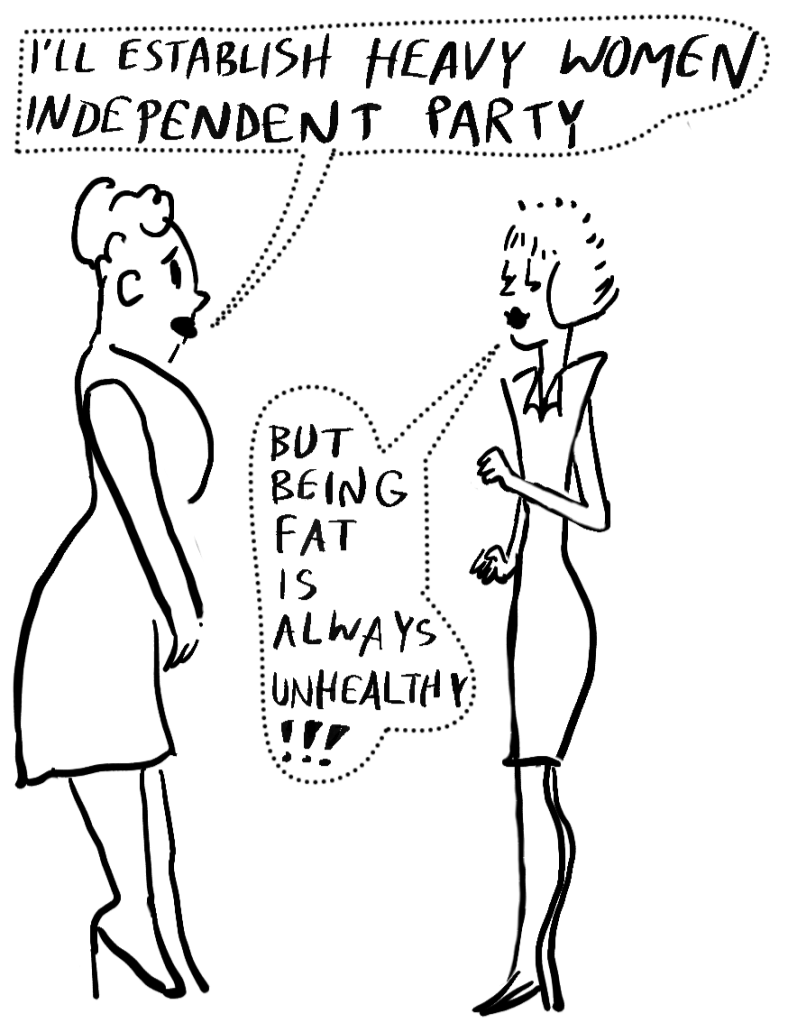 I'LL ESTABLISH HEAVY WOMEN
INDEPENDENT PARTY
BUT
BEING
FAT
IS
ALWAYS
UNHEALTHY
!!!